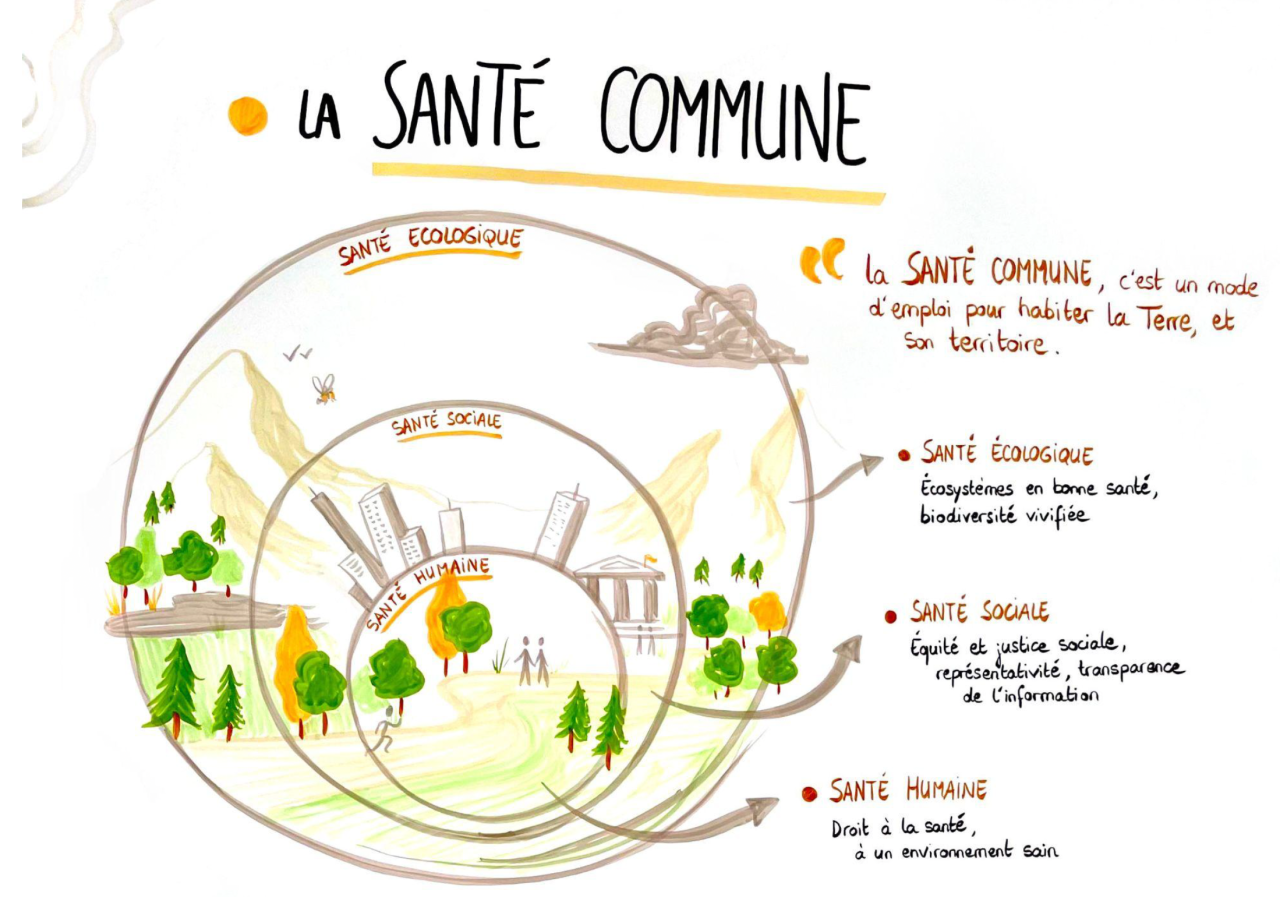 LA SANTÉ COMMUNE
SANTÉ ECOLOGIQUE
SANTÉ SOCIALE
SANTÉ HUMAINE
“ la SANTÉ COMMUNE, c'est un mode
d'emploi pour habiter la Terre, et
son territoire.
• SANTÉ ÉCOLOGIQUE
Écosystèmes en bonne santé,
biodiversité vivifiée
• SANTÉ SOCIALE
Équité et justice sociale,
représentativité, transparence
de l'information
• SANTÉ HUMAINE
Droit à la santé,
à un environnement sain